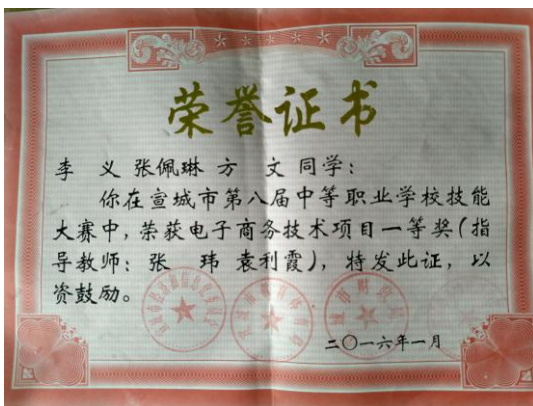 荣誉证书
李 义 张佩琳 方 文 同学：
你在宣城市第八届中等职业学校技能
大赛中，荣获电子商务技术项目一等奖（指
导教师： 张 玮 袁利霞），特发此证，以
资鼓励。
二〇一六年一月